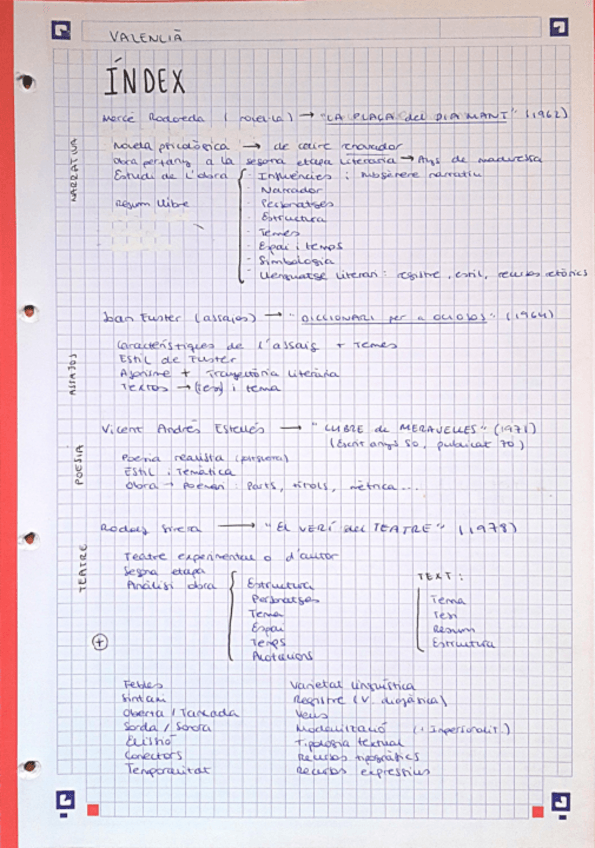 VALENCIÀ
ÍNDEX
Mercè Rodoreda (novel·la) → "LA PLAÇA del DIAMANT" (1962)
NARRATIVA
Novela psicològica → de caire innovador
Obra pertany a la segona etapa literària → Anys de maduresa
Estudi de l'obra
Influències i subgènere narratiu
Narrador
Resum llibre
Personatges
Estructura
Temes
Espai i temps
Simbologia
Llenguatge literari: registre, estil, recursos retòrics
Joan Fuster (assajos) → "DICCIONARI per a OCIOSOS" (1964)
ASSAJOS
Característiques de l'assaig + Temes
Estil de Fuster
Aforisme + Trajectòria literària
Textos → (tesi) i tema
Vicent Andrés Estellés → "LLIBRE de MERAVELLES" (1971)
(Escrit anys 50, publicat 70)
POESIA
Poesia realista
Estil i Temàtica
Obra → Poemari: Parts, títols, mètrica...
Rodolf Sirera → "EL VERÍ del TEATRE" (1978)
TEATRE
Teatre experimental o d'autor
Segona etapa
Anàlisi obra
Estructura
Personatges
Tema
Espai
Temps
Acotacions
TEXT:
Tema
Tesi
Resum
Estructura
+
Febles
Sintam
Oberta / Tancada
Sorda / Sonora
Elisió
Connectors
Temporalitat
Varietat lingüística
Registre (V. diafàsica)
Veus
Modalització (i Impersonalit.)
Tipologia textual
Recursos tipogràfics
Recursos expressius